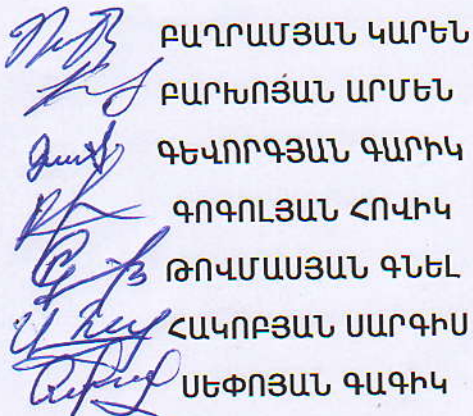 ԲԱՂՐԱՄՅԱՆ ԿԱՐԵՆ
ԲԱՐԽՈՅԱՆ ԱՐՄԵՆ
ԳԵՎՈՐԳՅԱՆ ԳԱՐԻԿ
ԳՈԳՈԼՅԱՆ ՀՈՎԻԿ
ԹՈՎՄԱՍՅԱՆ ԳՆԵԼ
ՀԱԿՈԲՅԱՆ ՍԱՐԳԻՍ
ՍԵՓՈՅԱՆ ԳԱԳԻԿ